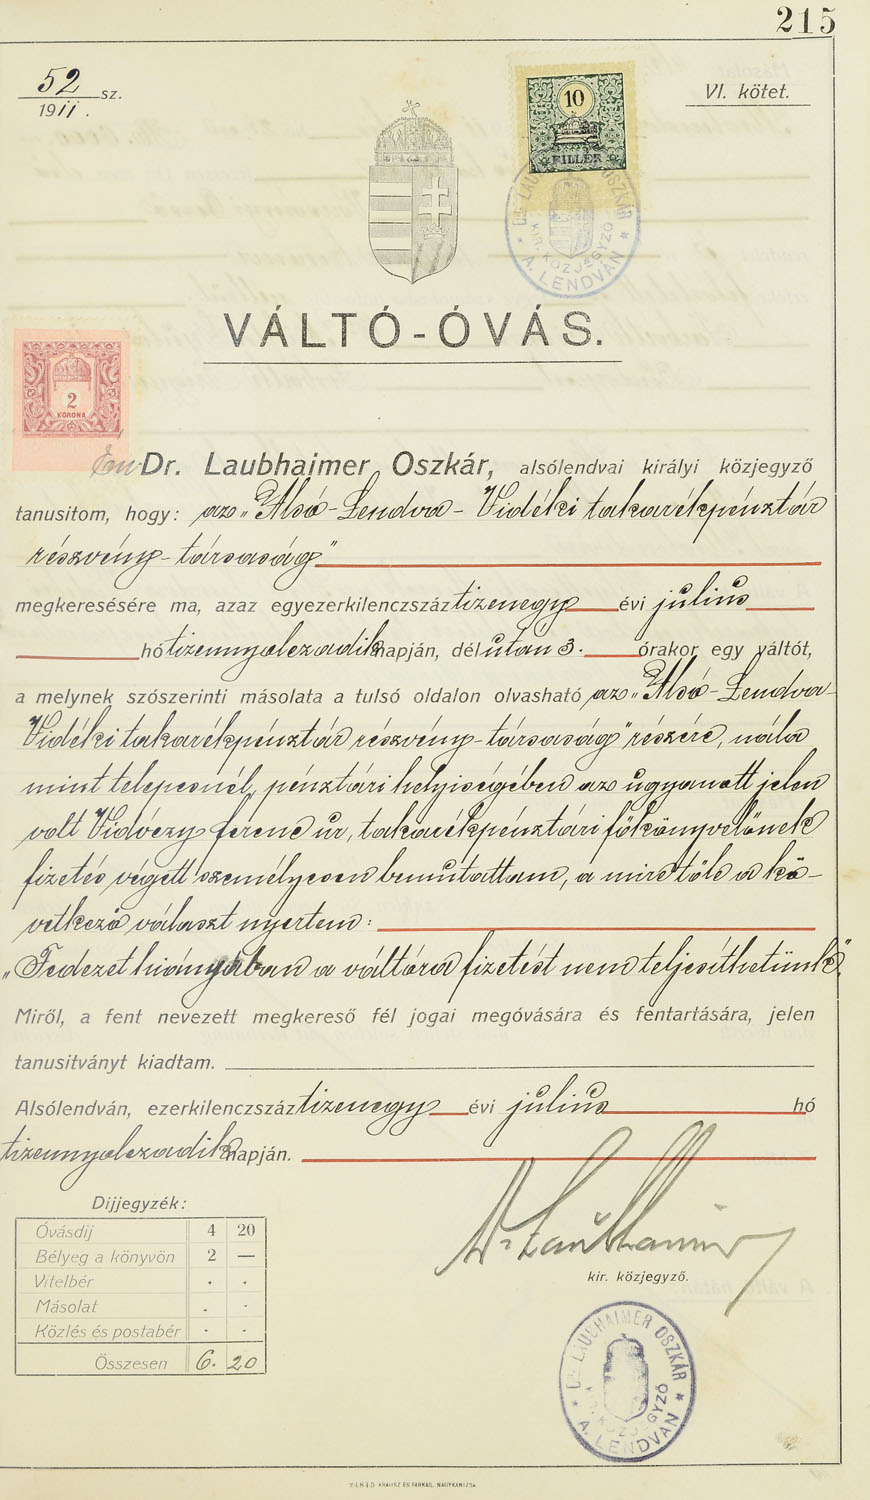 215
52 sz.
1911.
VI. kötet.
10
FILLÉR
DR LAUBHAIMER OSZKÁR
KIR. KÖZJEGYZŐ
* A. LENDVÁN *
VÁLTÓ-ÓVÁS.
2
KORONA
Én Dr. Laubhaimer Oszkár, alsólendvai királyi közjegyző
tanusitom, hogy: az „Alsó-Lendva-Vidéki takarékpénztár
részvény-társaság"
megkeresésére ma, azaz egyezerkilenczszáz tizenegy évi julius
hó tizennyolczadik napján, délután 3. órakor egy váltót,
a melynek szószerinti másolata a tulsó oldalon olvasható az „Alsó-Lendva-
Vidéki takarékpénztár részvény-társaság" részére, nála
mint telepesnél, pénztári helyiségében az ugyanott jelen
volt Vidóczy Ferenc úr, takarékpénztári főkönyvelőnek
fizetés végett személyesen bemutattam, a mire tőle a kö-
vetkező választ nyertem:
„Fedezet hiányában a váltóra fizetést nem teljesíthetünk".
Miről, a fent nevezett megkereső fél jogai megóvására és fentartására, jelen
tanusitványt kiadtam.
Alsólendván, ezerkilenczszáz tizenegy évi julius hó
tizennyolczadik napján.
Dijjegyzék:
Óvásdij 4 20
Bélyeg a könyvön 2 —
Vitelbér . .
Másolat . .
Közlés és postabér . .
Összesen 6. 20
Dr. Laubhaimer
kir. közjegyző.
DR LAUBHAIMER OSZKÁR
KIR. KÖZJEGYZŐ
* A. LENDVÁN *
24845 KRAUSZ ÉS FARKAS, NAGYKANIZSA